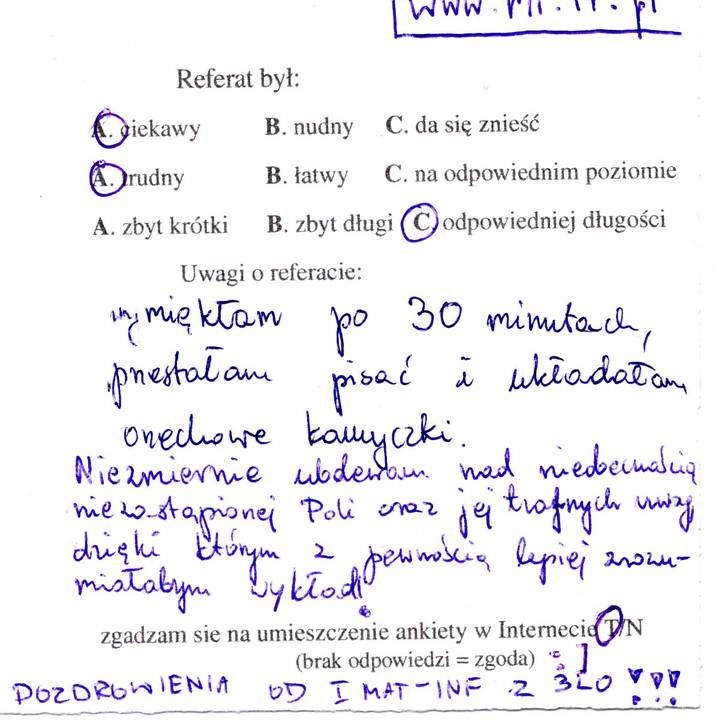 Referat był:
A. ciekawy B. nudny C. da się znieść
A. trudny B. łatwy C. na odpowiednim poziomie
A. zbyt krótki B. zbyt długi C. odpowiedniej długości
Uwagi o referacie:
wymiękłam po 30 minutach,
przestałam pisać i układałam
orzechowe kamyczki.
Niezmiernie ubolewam nad nieobecnością
niezastąpionej Poli oraz jej trafnych uwag
dzięki którym z pewnością lepiej zrozu-
miałabym wykład!
zgadzam sie na umieszczenie ankiety w Internecie T/N
(brak odpowiedzi = zgoda) :]
POZDROWIENIA OD I MAT-INF Z 3LO !!!